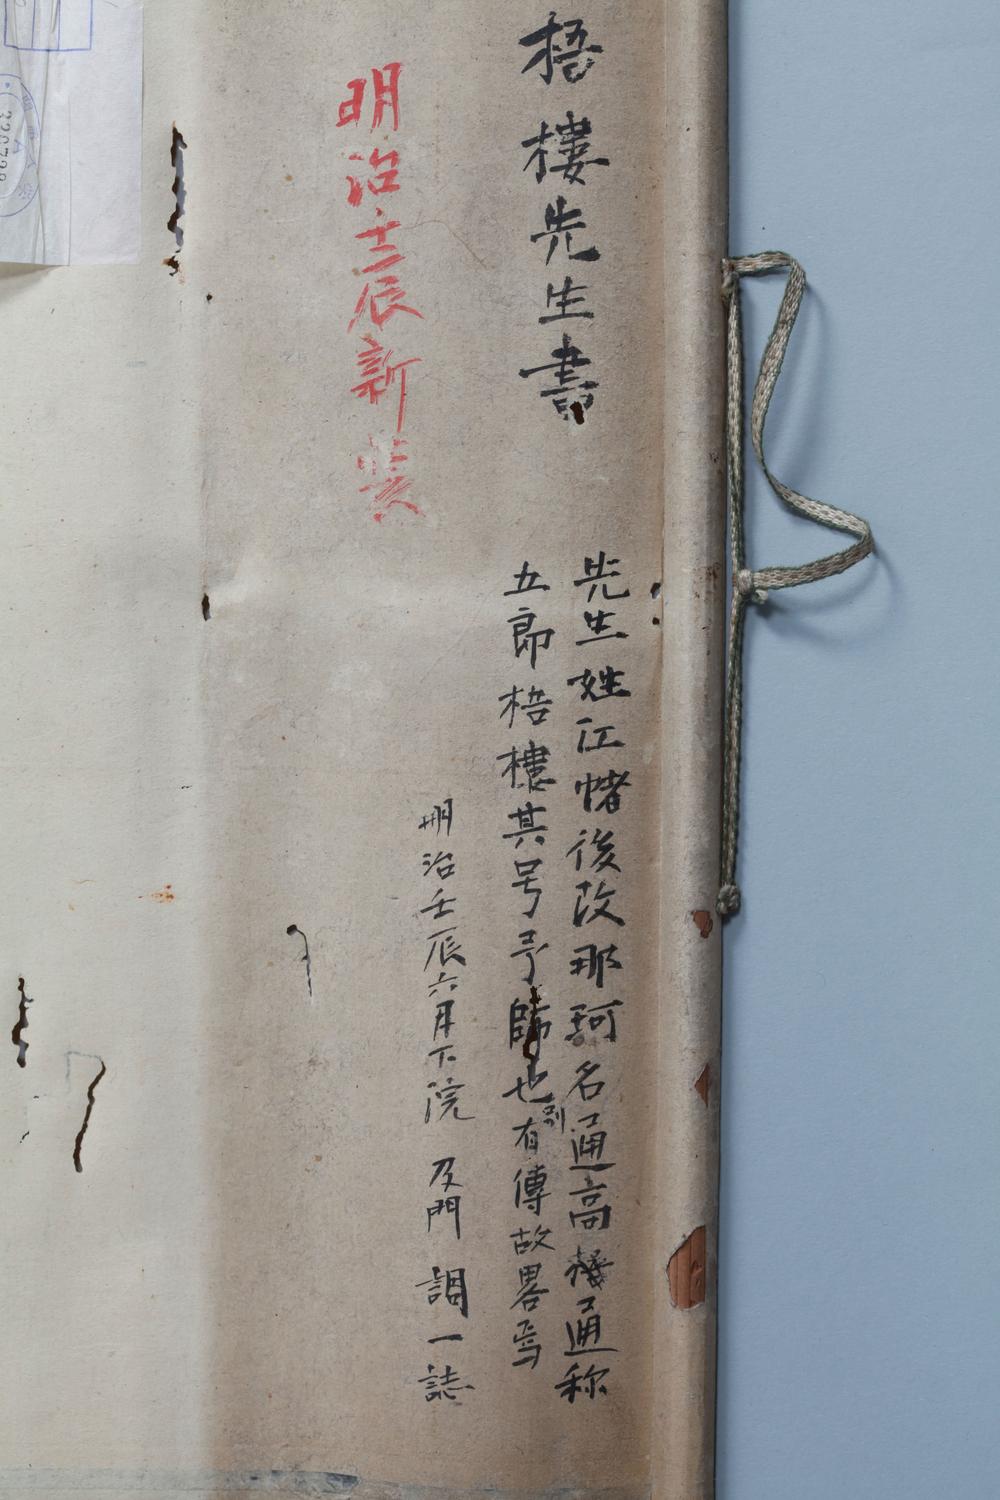 梧樓先生書
明治壬辰新装
先生姓江幡後改那珂名通高稱通称
五郎梧樓其号予師也別有傳故畧焉
明治壬辰六月下浣 及門 調一誌